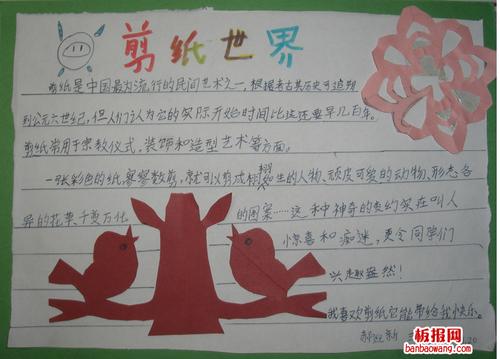 剪纸世界
剪纸是中国最为流行的民间艺术之一,根据考古其历史可追朔
到公元六世纪,但人们认为它的实际开始时间比这还要早几百年。
剪纸常用于宗教仪式,装饰和造型艺术等方面。
一张彩色的纸寥寥数剪,就可以剪成栩栩如生的人物、顽皮可爱的动物、形态各
异的花草、千变万化的图案……这种神奇的
实在叫人
惊喜和痴迷,更令同学们
兴趣盎然!
我喜欢剪纸它能带给我快乐。
板报网
banbaowang.com